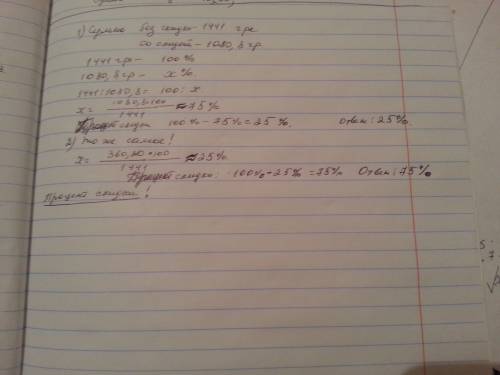 1) Сумма без скидки 1441 грн
со скидкой - 1080,8 гр
1441 грн - 100%
1080,8 грн - x %.
1441:1080,8 = 100 : x
x = 1080,8·100 / 1441 ≈ 75%
Процент скидки 100% - 75% = 25%. Ответ: 25%.
2) то же самое!
x = 360,20 · 100 / 1441 ≈ 25%.
Процент скидки: 100% - 25% = 75% Ответ: 75%
Процент скидки!